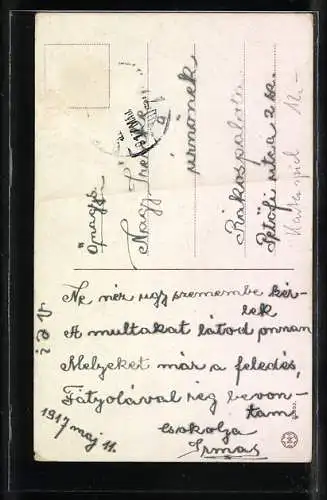 Őnagys.
Nagy Irénke
urnőnek
Rákospalota
Petőfi utca 2 sz.
Kartenspiel 12,-
Ne néz ugy szemembe kér-
lek
A multakat látod onnan
Melyeket már a feledés,
Fátyolával rég bevon-
tam
Csokolja
Irmas
1917 maj 11.